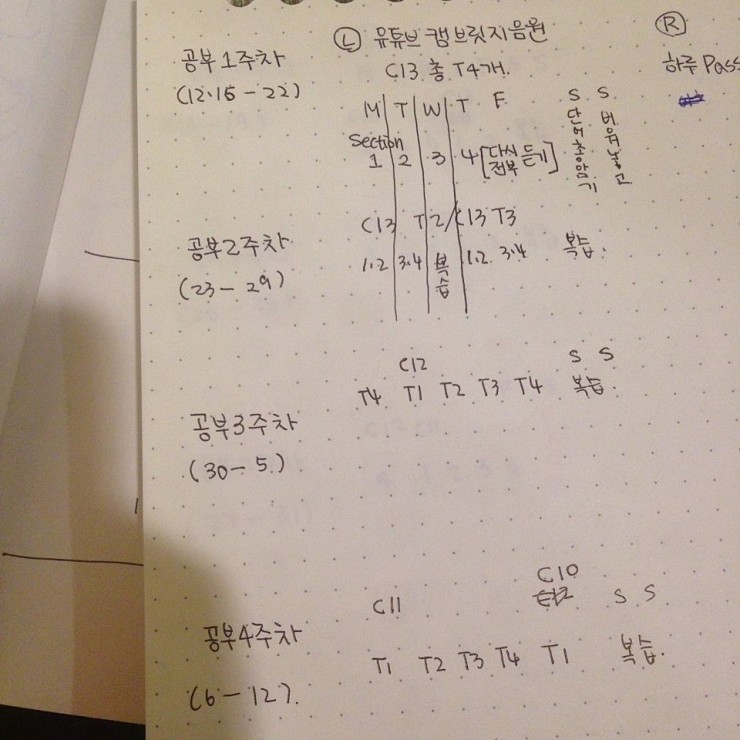 Ⓛ 유튜브 캠브릿지음원
Ⓡ
공부1주차
C13 총 T4개.
하루 Pass
(12.16 - 22)
M T W T F S S
Section
1 2 3 4 [다시 전부 듣기] 단어총암기 비워놓고
C13 T2/C13 T3
공부2주차
1.2 3.4 복습 1.2 3.4 복습.
(23 - 29)
C12 S S
T4 T1 T2 T3 T4 복습.
공부3주차
(30 - 5.)
C10
C11 S S
공부4주차
T1 T2 T3 T4 T1 복습.
(6 - 12).